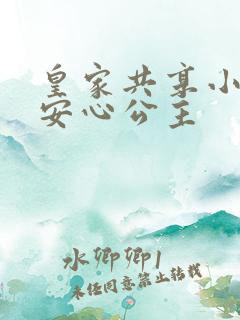 皇家共享小
安心公主
水卿卿1
未经同意禁止转载